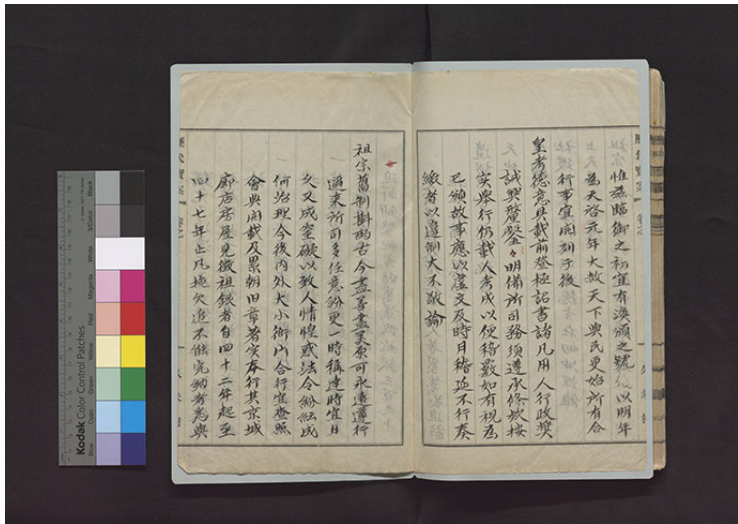 惟茲臨御之初宜有渙頒之號以明年
為天啓元年大赦天下與民更始所有合
行事宜開列于後
皇考德意具載前登極詔書諸凡用人行政獎
誠與釐蠹々明備所司務須遵承修欽按
實舉行仍載入考成以便稽覈如有視為
已頒故事應以虛文及時月稽延不行奏
繳者以違制大不敬論
一
祖宗舊制斟酌古今盡善盡美原可永遠遵行
邇來所司多任意紛更一時稱速時宜日
久又成窒礙以致人情惶惑法令紛紜成
何治理今後內外大小衙門合行宜查照
會典開載及累朝旧章著實奉行其京城
廊店房屋見徵租銀者自四十二年起至
四十七年止凡拖欠追不能完納者悉與
Kodak Color Control Patches
Blue
Cyan
Green
Yellow
Red
Magenta
White
3/Color
Black